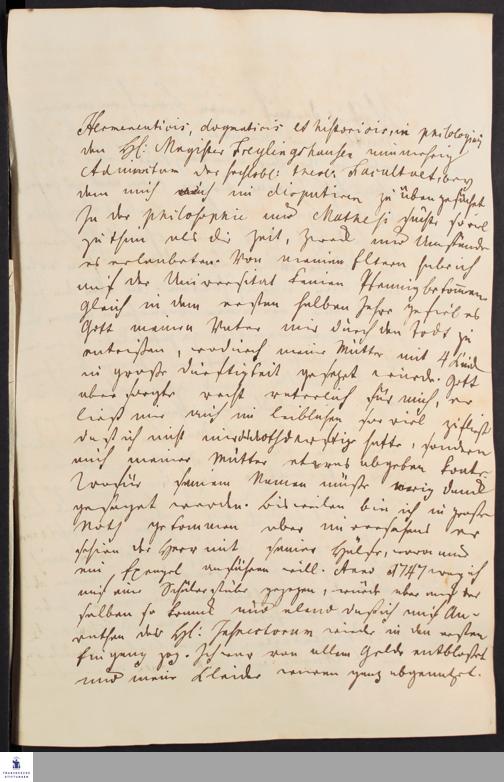 Hermeneuticis, dogmaticis et historicis, in philologicis
den Hl: Magister Freylingshausen nunmehrig
Adjunctum der hochlobl: theol: Facultaet, bey
dem mich auch im disputiren zu üben gesucht.
In der philosophie und Mathesi suchte so viel
zu thun als die Zeit, Zweck und Umstände
es erlaubeten. Von meinen Eltern habe ich
auf der Universitat keinen Pfennig bekommen.
Gleich in dem ersten halben Jahre gefiel es
Gott meinen Vater mir durch den Todt zu
entreißen, wodurch meine Mutter mit 4 Kind
in große Dürftigkeit gesezet wurde. Gott
aber sorgte recht vaterlich für mich, er
ließ mir auch im leiblichen so viel zufließe
daß ich nicht nur Nothdürftig hatte, sondern
auch meiner Mutter etwas abgeben konte.
Wofür seinem Namen müße ewig Danck
gesaget werden. Bisweilen bin ich in große
Noth gekommen aber unversehens er
schien der Herr mit seiner Hülfe, wovon nur
ein Exempel anführen will. Anno 1747 zog ich
auf eine Schülerstube gezogen, wurde aber auf der
selben so kranck und elend daß ich auf An-
rathen des Hl: Inspectorum wieder in den ersten
Eingang zog. Ich war von allem Gelde entblößet
und meine Kleider waren ganz abgenutzet.
FRANCKESCHE
STIFTUNGEN